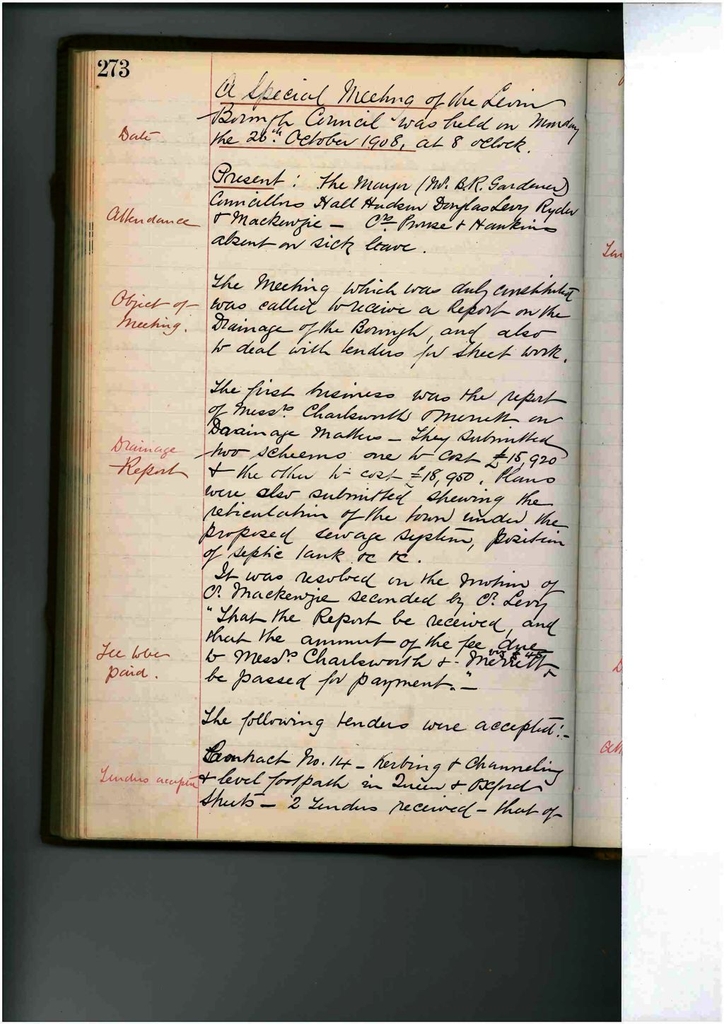 273
A Special Meeting of the Levin
Borough Council was held on Monday
the 26th October 1908, at 8 oclock.
Date
Present: The Mayor (Mr. B.R. Gardener)
Councillors Hall Hudson Douglas Levy Ryder
& Mackenzie – Crs Prouse & Hankins
absent on sick leave.
Attendance
The Meeting which was duly constituted
was called to receive a Report on the
Drainage of the Borough, and also
to deal with tenders for street work.
Object of
Meeting.
The first business was the report
of Messrs Charlsworth & Merrett on
Drainage Matters – They submitted
two scheems one to cost £15,920
& the other to cost £18,950. Plans
were also submitted shewing the
reticulation of the town under the
proposed sewage system, position
of septic tank &c &c.
Drainage
Report
It was resolved on the motion of
Cr. Mackenzie seconded by Cr. Levy
"That the Report be received, and
that the amount of the fee due
to Messrs Charlsworth & Merrett
be passed for payment." –
Fee to be
paid.
The following tenders were accepted:-
Contract No. 14 – Kerbing & Channeling
& level footpath in Queen & Oxford
Streets – 2 Tenders received – that of
Tenders accepted